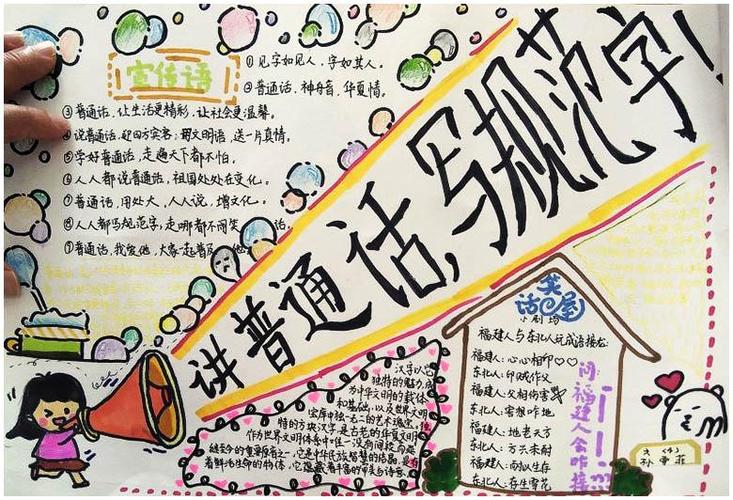 宣传语
①见字如见人，字如其人。
②普通话，神舟音，华夏情。
③普通话，让生活更精彩，让社会更温馨。
④说普通话，迎四方宾客；用文明语，送一片真情。
⑤学好普通话，走遍天下都不怕。
⑥人人都说普通话，祖国处处在变化。
⑦普通话，用处大，人人说，增文化。
⑧人人都写规范字，走哪都不闹笑
⑨普通话，我爱他，大家一起普及他
讲普通话，写规范字！
笑话屋
小剧场
福建人与东北人玩成语接龙：
福建人：心心相印♡♡
东北人：印贼作父
福建人：父相伤害
东北人：害想咋地
福建人：地老天方
东北人：方兴未耐
福建人：耐以生存
东北人：存生雪花
问：福建人会咋接
汉字以它
独特的魅力，成
为中华文明的载体
和基础，以及世界文明
宝库中独一无二的艺术瑰宝。独
特的方块汉字是古老的华夏文明
作为世界文明体系中唯一没有间段而延
续至今的重要原因之一，它是中华民族智慧的结晶，是有
着鲜活生命的物体，它蕴藏着丰富的审美与诗意